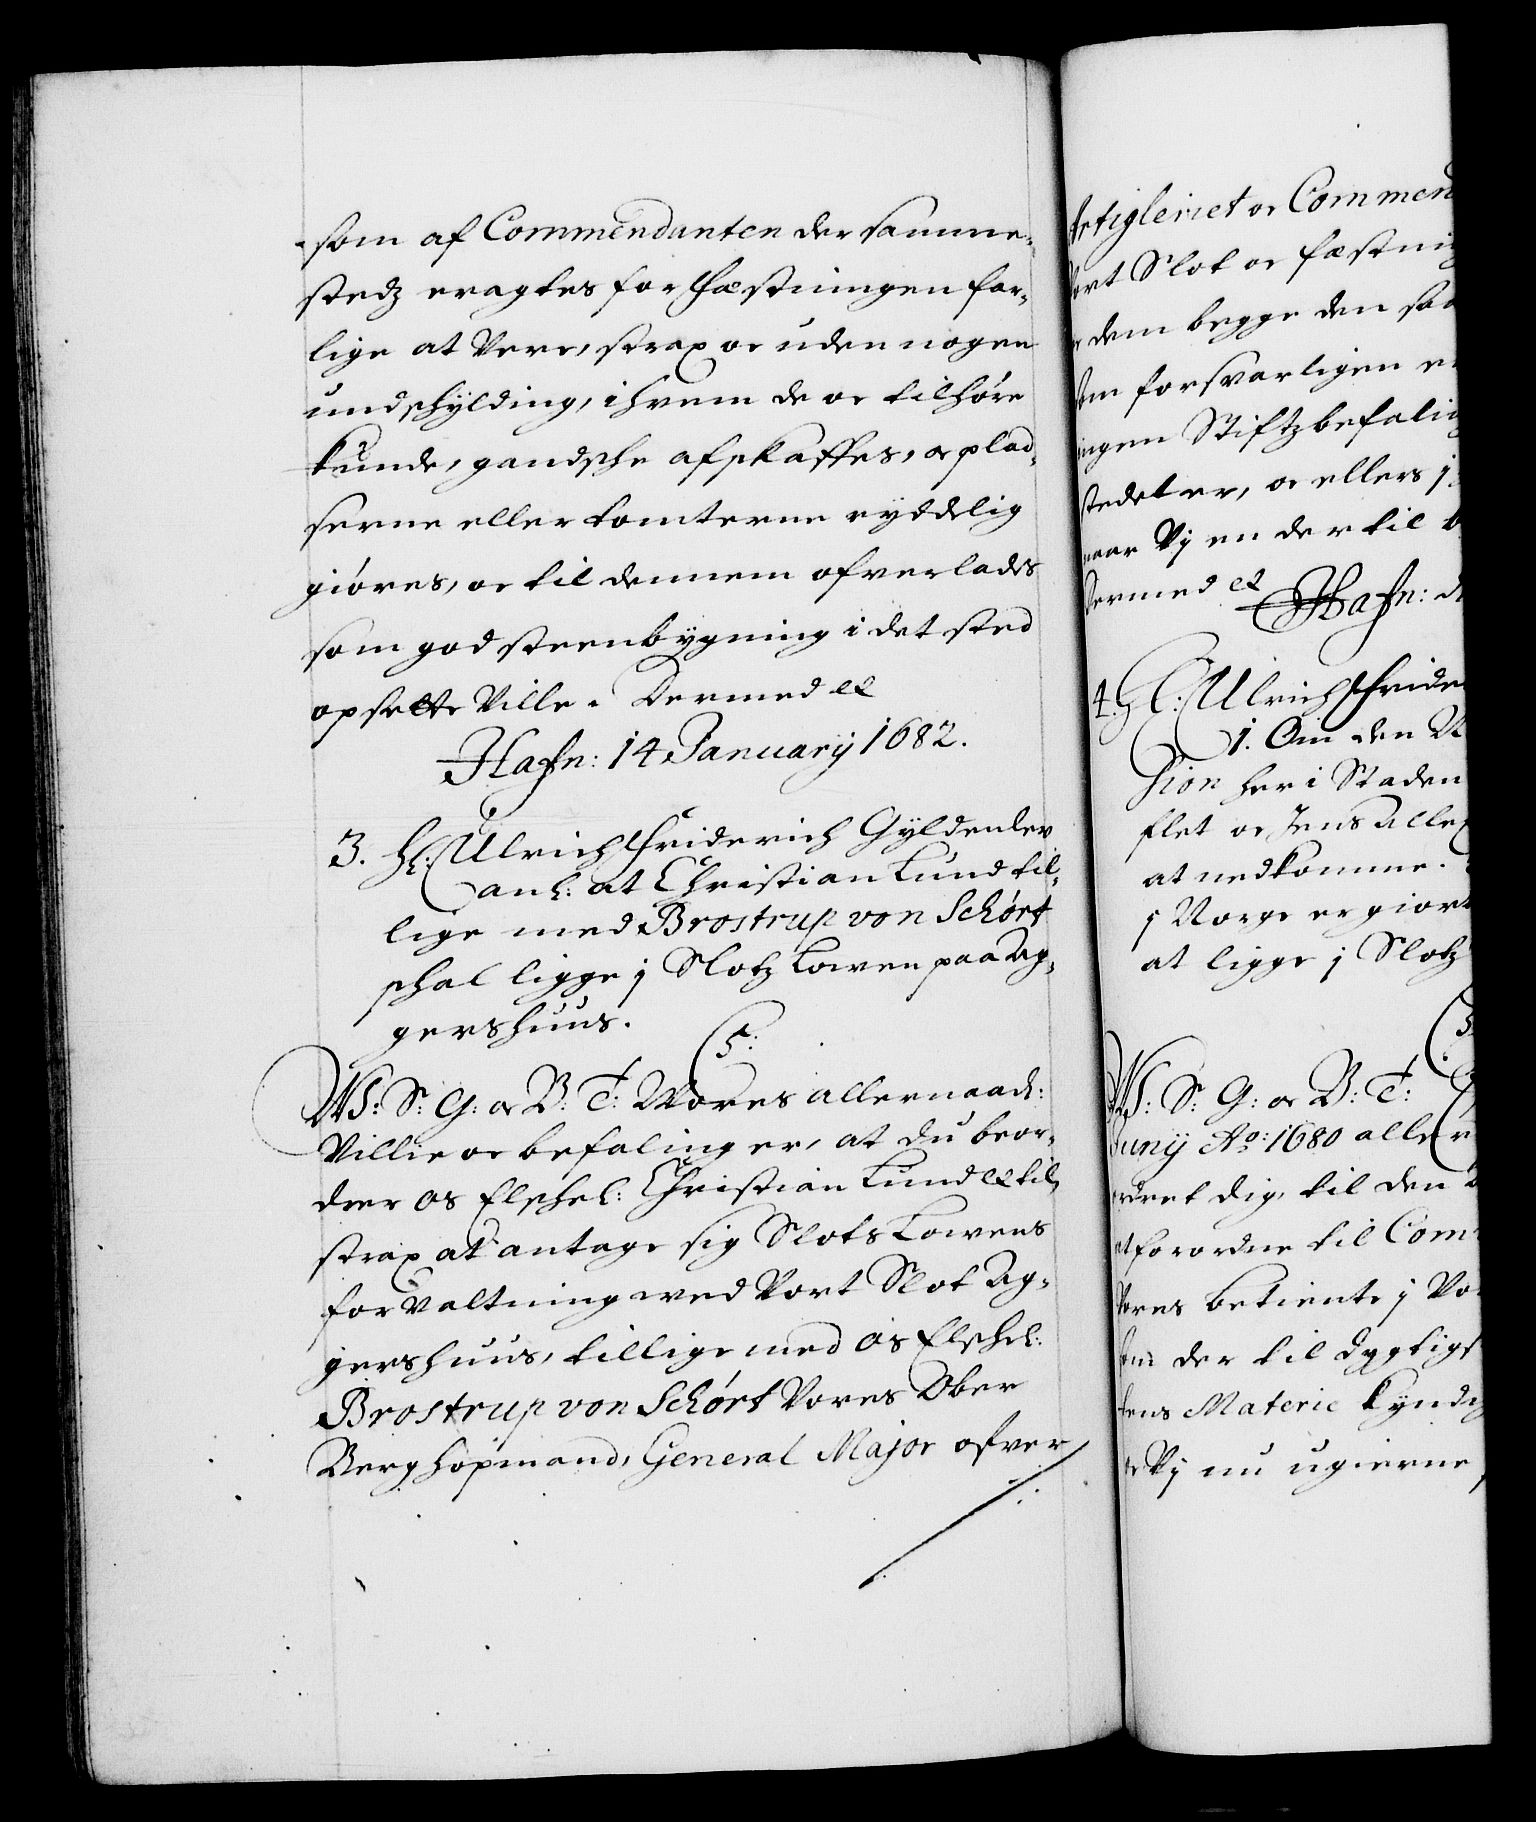 som af Commendanten der samme-
stedz eragtes for Fæstningen far-
lige at Vere, strax oc uden nogen
undschÿlding, ihvem de oc tilhóre
kunde, gandsche afskaffes, oc plad-
serne eller tomterne rÿddelig
gióres, oc til dennem ofverlades
som god steenbÿgning i det sted
opsette Ville. Dermed etc
Hafn: 14 Januarij 1682.
3. H: Ulrich Friderich Gÿldenlev
anl: at Christian Lund til-
lige med Brostrup von Schórt
schal ligge j Slotz Loven paa Ag-
gershuus.
C5:
W: S: G: oc B: T: Vores allernaad:
Villie oc befaling er, at du beor-
drer os Elschel: Christian Lund etc til
strax at antage sig Slots Lovens
forvaltning ved Vort Slot Ag-
gershuus, tillige med os Elschel:
Brostrup von Schórt Vores Ober
Berghopmand, General Major ofver
Artigleriet oc Commen
Vort Slot oc fæstni
dem begge den saa
dem forsvarligen
ingen Stiftzbefali
stedet er, oc ellers j
naar Vj en der til
Dermed etc Hafn:
4. H: Ulrich Fride
1. Om den
sion her i Staden
flet oc Jens Alle
at nedkomme.
j Norge er giort
at ligge j Slotz
W: S: G: oc B: T:
Junij Ao: 1680 aller
ordret dig, til den
at forordne til Com
Vores betiente j Vo
der til dygtigst
Materie kÿndig
Vj nu ugierne